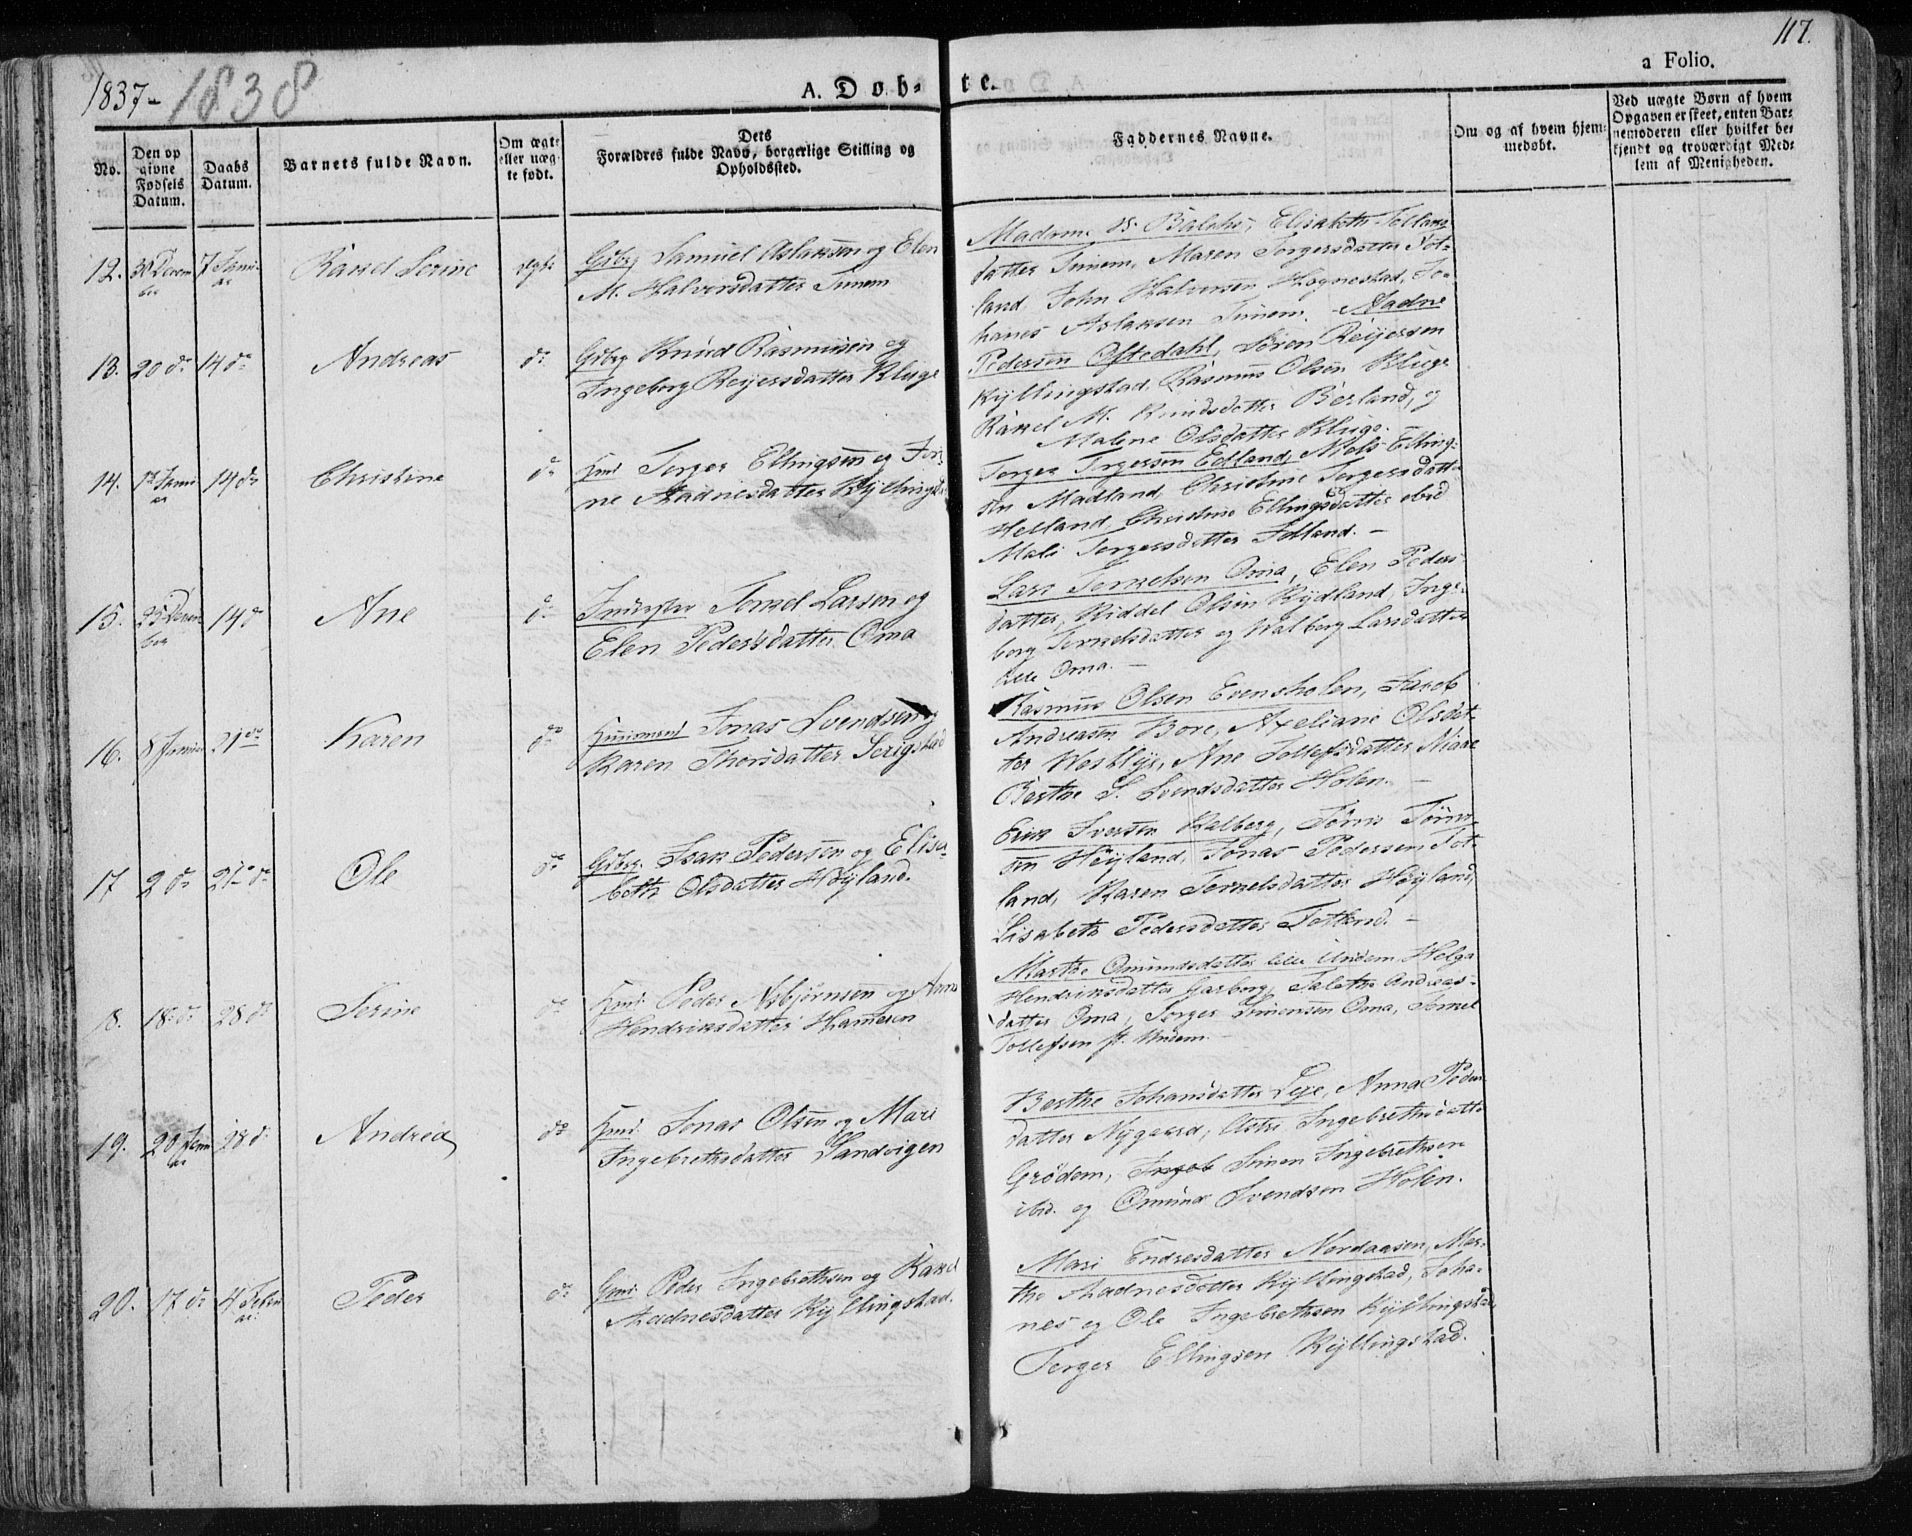 1837- 1838
A. Døb-
te.
117.
a Folio.
No.
Den op
givne
Fødsels
Datum.
Daabs
Datum.
Barnets fulde Navn.
Om ægte
eller uæg-
te født.
Dets
Forældres fulde Navn, borgerlige Stilling og
Opholdssted.
Faddernes Navne.
Om og af hvem hjem-
medøbt.
Ved uægte Børn af hvem
Opgaven er skeet, enten Bar-
nemoderen eller hvilket be-
kjendt og troværdigt Med-
lem af Menigheden.
12. 30 Decem
ber
7 Janu-
ar
Rakel Serine
ægte
Gdbrg Samuel Aslaksen og Elen
M. Halvorsdatter Tunem
Madame B. Balchs, Elisabeth Tollaks
datter Tunem, Maren Torgersdatter Tot-
land, John Halvorsen Hognestad, Jo-
hanes Aslaksen Tunem.
13. 20 do 14 do
Andreas
do
Gdbrg Knud Rasmusen og
Ingeborg Reijersdatter Kluge
Aadne
Pedersen Oftedahl, Søren Reijersen
Kyllingstad, Rasmus Olsen Kluge
Rakel M. Knudsdatter Berland, og
Malene Olsdatter Kluge.
14. Janu
ar
14 do
Christine
do
Torger Ellingsen og Jor-
ne Aadnesdatter Kyllingst
Torger Torgersen Edland, Niels Elling-
sen Madland, Christine Torgersdatter
Helland, Christine Ellingsdatter ibid
Mali Torgersdatter Folland. -
15. 25 Decem
ber
14 d
Ane
do
Torkel Larsen og
Elen Pedersdatter Oma
Lars Torkelsen Oma, Elen Peders
datter, Riddel Olsen Rydland, Inge-
borg Torkelsdatter og Walborg Larsdatter
Oma. -
16. 8 Januar 21 do
Karen
do
Huusmand Jonas Svendsen og
Karen Thorsdatter Serigstad
Rasmus Olsen Evensholen, Jacob
Andreasen Bore, Axeliane Olsdat-
ter Westlye, Ane Tollefsdatter Niare
Berthe S. Svendsdatter Holen. -
17 2 do 21 do
Ole
do
Gdbrg. Isak Pedersen og Elisa-
beth Olsdatter Høyland.
Erik Iversen Kalberg, Tønnes Tønne-
sen Høyland, Jonas Pedersen Tot-
land, Karen Torkelsdatter Høyland,
Lisabeth Pedersdatter Totland. -
18. 18 do 28 do
Serine
do
Peder Asbjørnsen og Anna
Hendriksdatter Hameren
Marthe Omundsdatter lille Undem, Helga
Hendriksdatter Garborg, Talette Andreas-
datter Oma, Torger Simonsen Oma, Torkel
Tollefsen st. Undem. -
19. 20 Janu
ar
28 do
Andrea
do
Jonas Olsen og Mari
Ingebrethsdatter Sandvigen
Berthe Johansdatter Leje, Anna Peders
datter Nygaard, Astri Ingebrethsdatter
Grødem, Simen Ingebrethsen
ibid. og Omund Svendsen Holen.
20. 17 do 4 Febru
ar.
Peder
do
Peder Ingebrethsen og Rakel
Aadnesdatter Kyllingstad.
Mari Endresdatter Nordaasen, Mar-
the Aadnesdatter Kyllingstad, Joha-
nes og Ole Ingebrethsen Kyllingstad
Torger Ellingsen Kyllingstad.